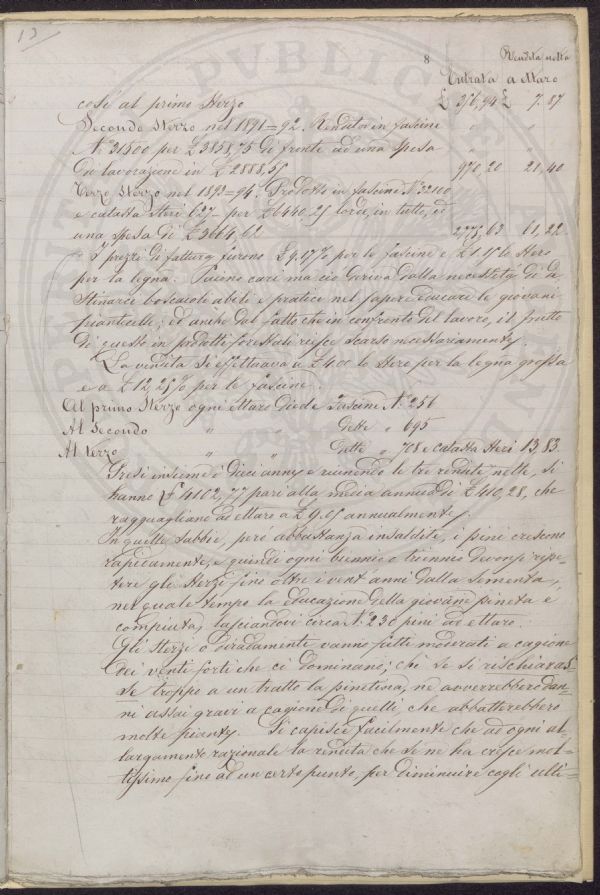 13
8
Rendita netta
Entrata a ettaro
così al primo sterzo £ 356,94 £ 7.87
Secondo sterzo nel 1891=92. Rendita in fascine " "
N.° 31500 per £ 3858,75 di fronte ad una spesa " "
di lavorazione in £ 2888,55 970,20 21,40
Terzo sterzo nel 1893=94. Prodotto in fascine N.° 32100
e catasta steri 627 - per £ 6440,25 lordi, in tutto, ed
una spesa di £ 3664,62 2775,63 61,22
I prezzi di fattura furono £ 9.17% per le fascine e £ 1.15 lo stero
per la legna. Furono cari ma ciò deriva dalla necessità di a=
stinarci boscaioli abili e pratici nel sapere educare le giovani
pianticelle; ed anche dal fatto che in confronto del lavoro, il frutto
di questo in prodotti forestali riesce scarso necessariamente.
La vendita si effettuava a £ 4.00 lo stero per la legna grossa
e a £ 12,25% per le fascine.
Al primo sterzo ogni ettaro diede fascine N.° 256
Al secondo " " dette " 695
Al terzo " " dette " 708 e catasta steri 13,83.
Presi insieme i dieci anni e riunendo le tre rendite nette, si
hanno £ 4102,77 pari alla media annua di £ 410,28, che
ragguagliano ad ettaro a £ 9.05 annualmente.
In quelle sabbie, però abbastanza insaldite, i pini crescono
rapidamente, e quindi ogni biennio o triennio devonsi ripe=
tere gli sterzi fino oltre i vent'anni dalla sementa,
nel quale tempo la educazione della giovane pineta è
compiuta, lasciandovi circa N.° 230 pini ad ettaro.
Gli sterzi o diradamenti vanno fatti moderati a cagione
dei venti forti che ci dominano; chè se si rischiaras=
se troppo a un tratto la pinetina, ne avverrebbero dan=
ni assai gravi a cagione di quelli che abbatterebbero
molte piante. Si capisce facilmente che ad ogni al=
largamento razionale la rendita che se ne ha cresce mol=
tissimo fino ad un certo punto, per diminuire cogli ulti=